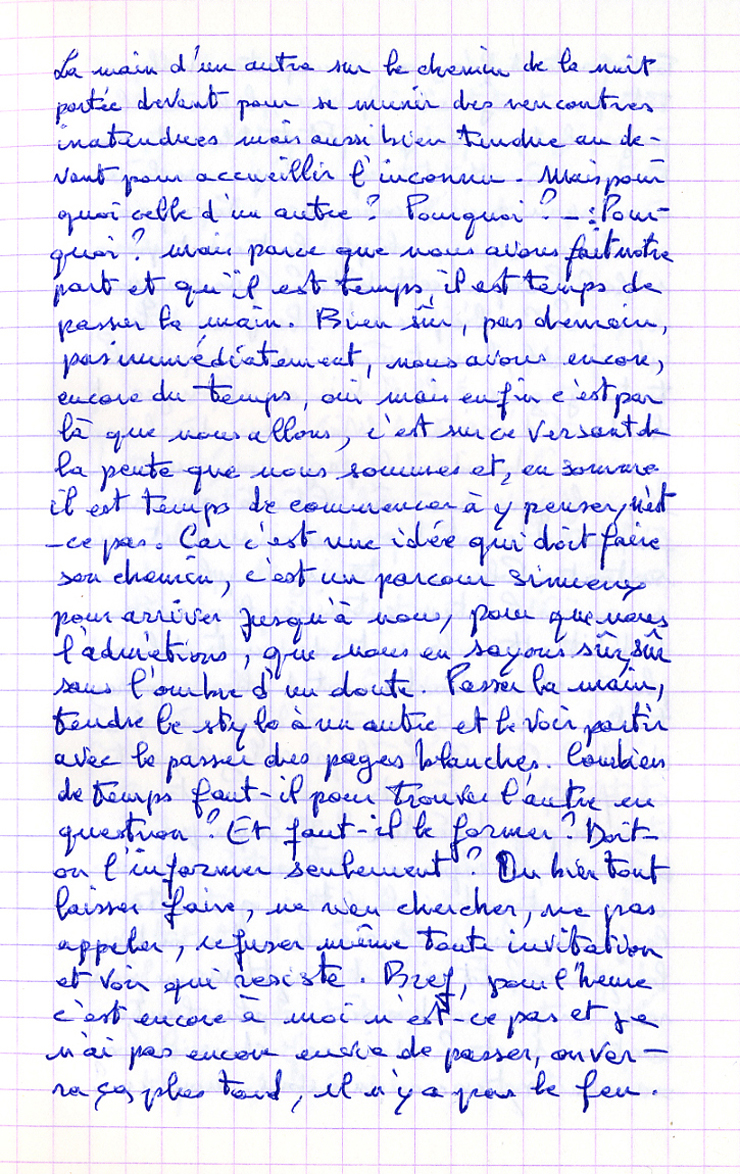 La main d'un autre sur le chemin de la nuit
portée devant pour se munir des rencontres
inatendues mais aussi bien tendue au de-
vant pour accueillir l'inconnu. Mais pour
quoi celle d'un autre ? Pourquoi ? - : Pour-
quoi ? mais parce que nous avons fait notre
part et qu'il est temps, il est temps de
passer la main. Bien sûr, pas demain,
pas immédiatement, nous avons encore,
encore du temps, oui mais enfin c'est par
là que nous allons, c'est sur ce versant de
la pente que nous sommes et, en somme
il est temps de commencer à y penser, n'est
-ce pas. Car c'est une idée qui doit faire
son chemin, c'est un parcour sinueux
pour arriver jusqu'à nous, pour que nous
l'admétions, que nous en soyons sûr, sûr
sans l'ombre d'un doute. Passer la main,
tendre le stylo à un autre et le voir partir
avec le passer des pages blanches. Combien
de temps faut-il pour trouver l'autre en
question ? Et faut-il le former ? Doit-
on l'informer seulement ? Ou bien tout
laisser faire, ne rien chercher, ne pas
appeler, refuser même toute invitation
et voir qui resiste. Bref, pour l'heure
c'est encore à moi n'est-ce pas et je
n'ai pas encore envie de passer, on ver-
ra ça plus tard, il n'y a pas le feu.